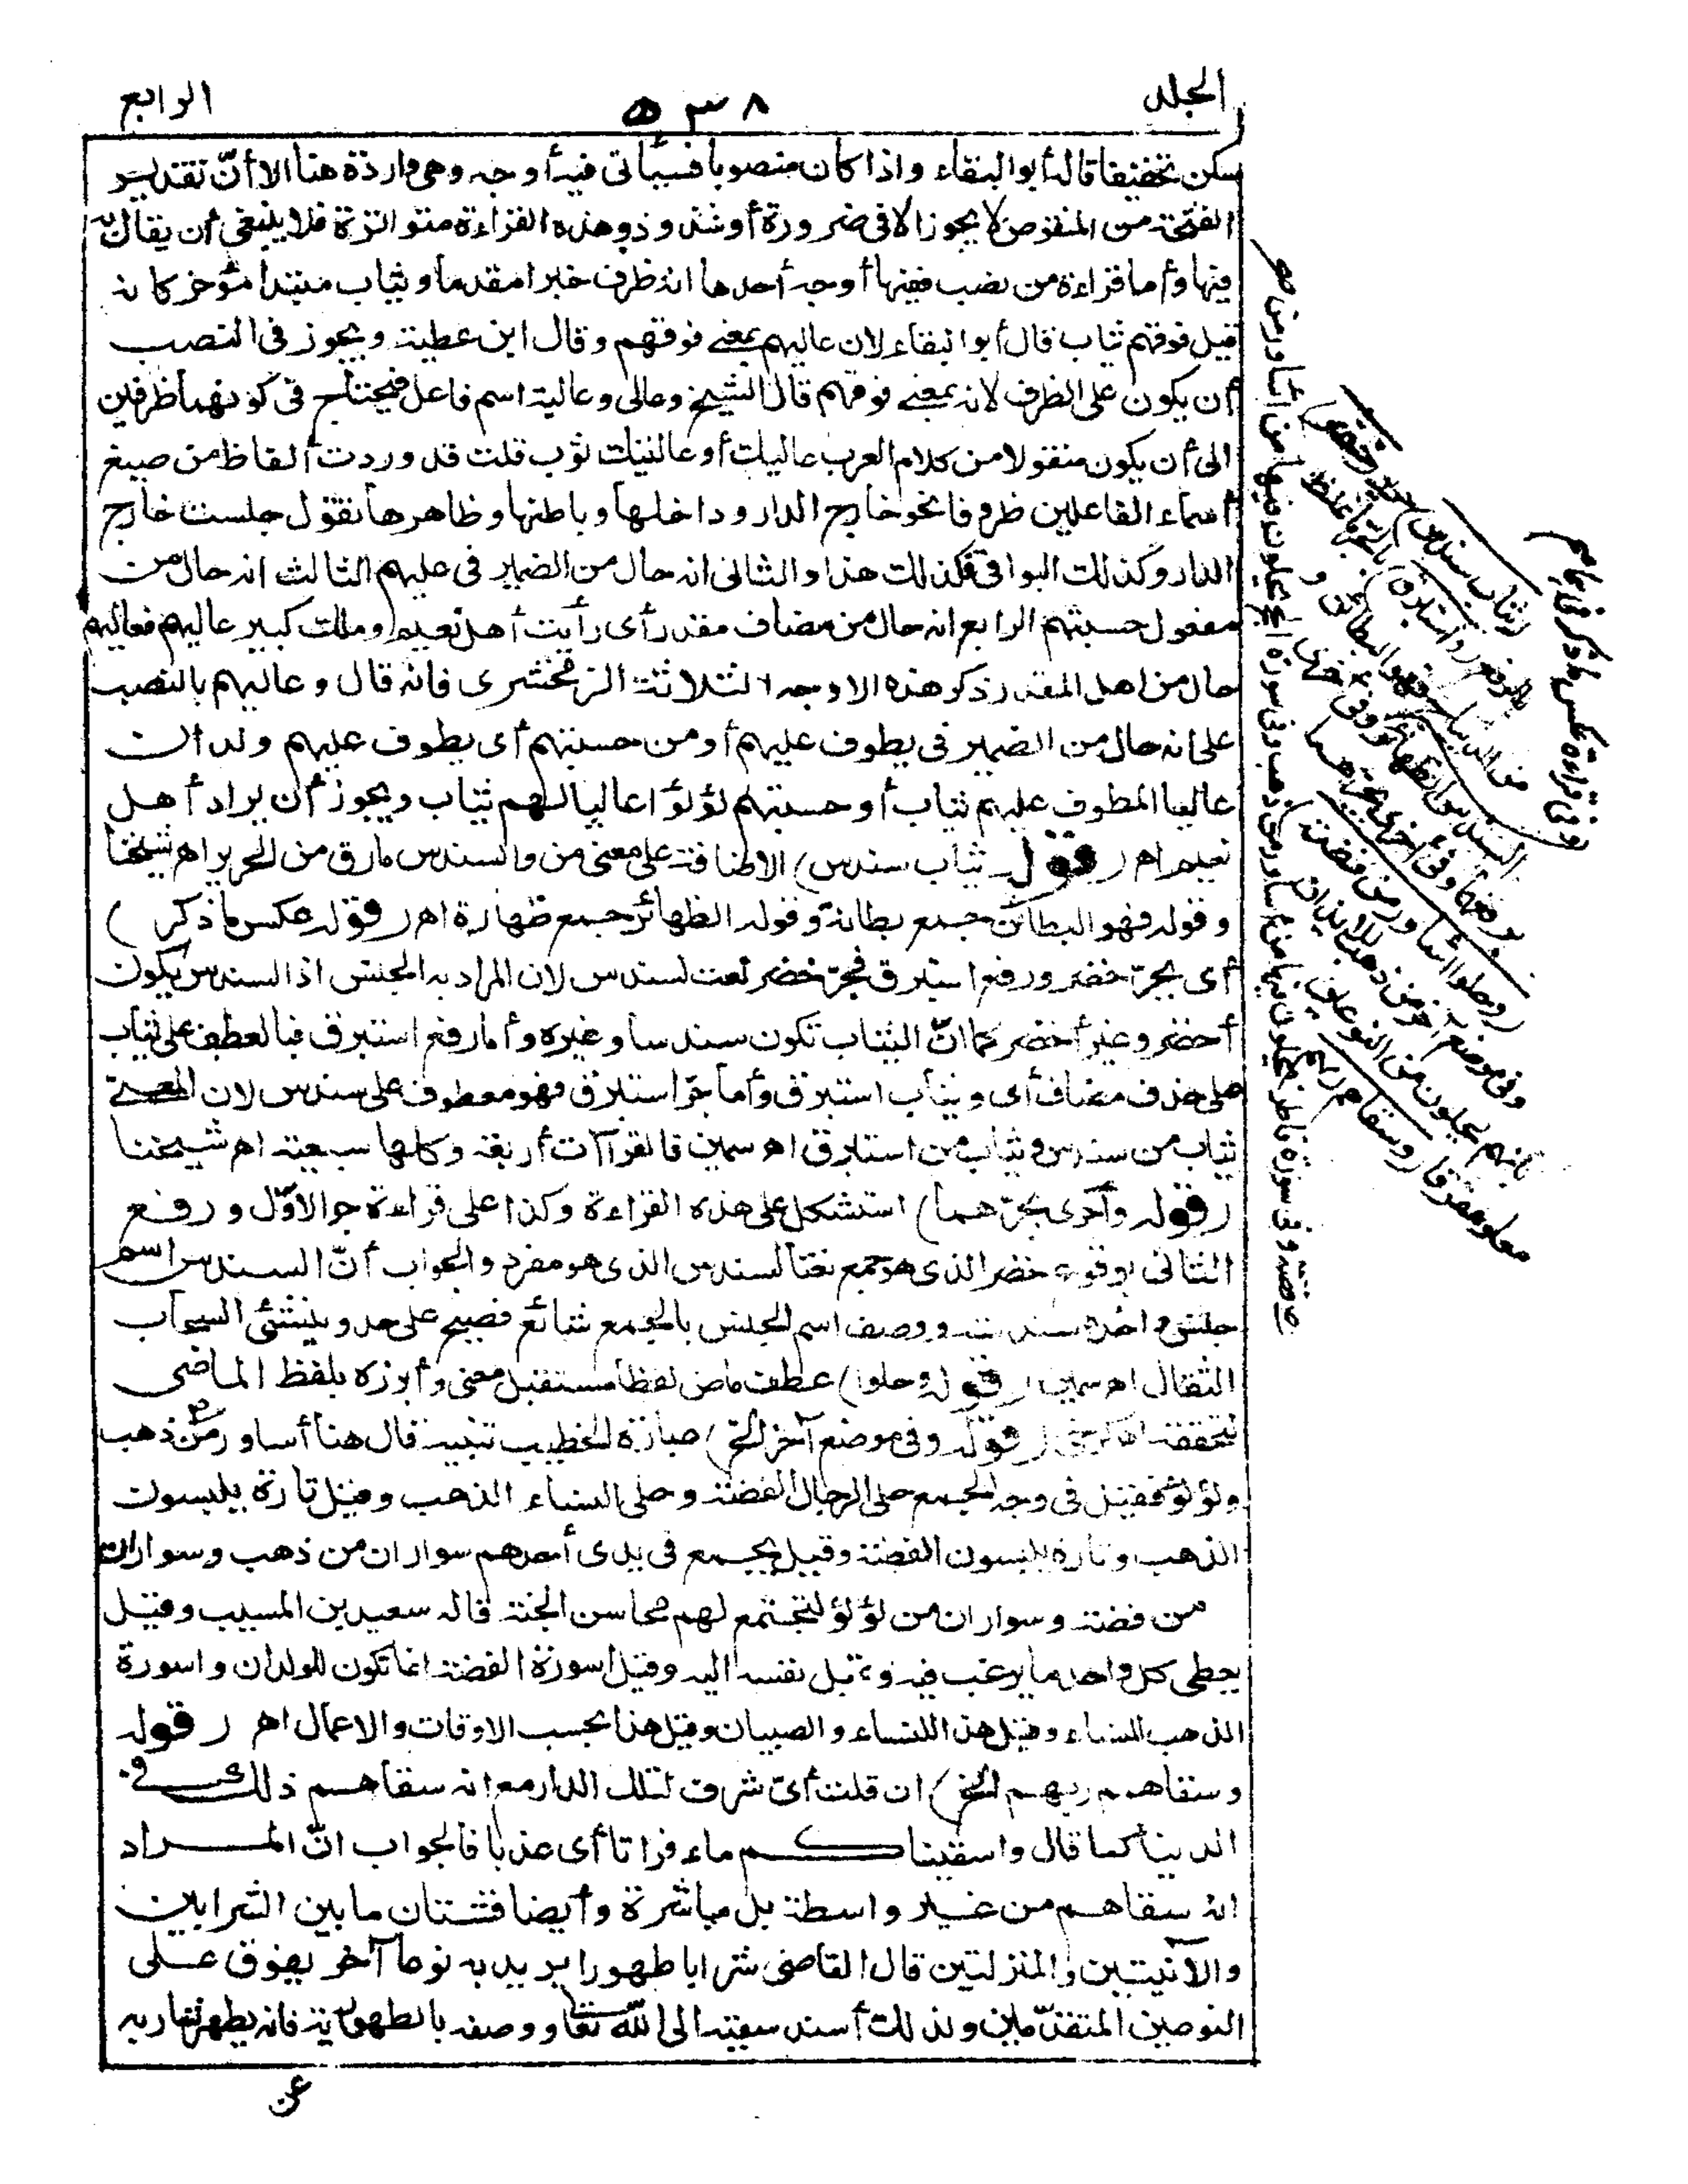 الجلد
٥٣٨
الرابع
سكن تخفيفا قاله أبو البقاء واذا كان منصوبا فسيأتى فيه أوجه وهى واردة هنا الا أنّ تقدير
الفتحة من المنقوص لا يجوز الا فى ضرورة أو شذوذ وهذه القراءة متواترة فلا ينبغى أن يقال به
فيها وأما قراءة من نصب ففيها أوجه أحدها انه ظرف خبرا مقدما وثياب مبتدأ مؤخر كانه
قيل فوقهم ثياب قال أبو البقاء لان عاليهم بمعنى فوقهم وقال ابن عطية ويجوز فى النصب
أن يكون على الظرف لانه بمعنى فوقهم قال الشيخ وعالى وعالية اسم فاعل فيحتاج فى كونهما ظرفين
الى أن يكون منقولا من كلام العرب عاليك أو عاليتك ثوب قلت قد وردت ألفاظ من صيغ
أسماء الفاعلين ظروفا نحو خارج الدار وداخلها وباطنها وظاهرها تقول جلست خارج
الدار وكذلك البواقى فكذلك هذا والثانى انه حال من الضمير فى عليهم الثالث انه حال من
مفعول حسبتهم الرابع انه حال من مضاف مقدر أى رأيت أهل نعيم وملك كبير عاليهم فعاليهم
حال من اهل المقدر ذكر هذه الاوجه الثلاثة الزمخشرى فانه قال وعاليهم بالنصب
على انه حال من الضمير فى يطوف عليهم أو من حسبتهم أى يطوف عليهم ولدان
عاليا المطوف عليهم ثياب أو حسبتهم لؤلؤا عاليا لهم ثياب ويجوز أن يراد أهل
نعيم اهـ (قوله ثياب سندس) الاضافة على معنى من والسندس مارق من الحرير اهـ شيخنا
وقوله فهو البطائن جمع بطانة وقوله الظهائر جمع ظهارة اهـ (قوله عكس ما ذكر)
أى بجرّ خضر ورفع استبرق فجرّ خضر نعت لسندس لان المراد به الجنس اذ السندس يكون
أخضر وغير أخضر كما انّ الثياب تكون سندسا وغيره وأما رفع استبرق فبالعطف على ثياب
على حذف مضاف أى وثياب استبرق وأما جرّ استبرق فهو معطوف على سندس لان المعنى
ثياب من سندس وثياب من استبرق اهـ سمين فالقرآات أربعة وكلها سبعية اهـ شيخنا
(قوله وأخرى بجرّهما) استشكل على هذه القراءة وكذا على قراءة جر الاوّل ورفع
الثانى بوقوع خضر الذى هو جمع نعتا لسندس الذى هو مفرد والجواب أنّ السندس اسم
جنس واحده سندسة ووصف اسم الجنس بالجمع شائع فصيح على حد وينشئ السحاب
الثقال اهـ سمين (قوله وحلوا) عطف ماض لفظا مستقبل معنى وأبرزه بلفظ الماضى
لتحققه اهـ كرخى (قوله وفى موضع آخر الخ) عبارة الخطيب تنبيه قال هنا أساور من ذهب
ولؤلؤ فقيل فى وجه الجمع حلى الرجال الفضة وحلى النساء الذهب وقيل تارة يلبسون
الذهب وتارة يلبسون الفضة وقيل يجمع فى يدى أحدهم سواران من ذهب وسواران
من فضة وسواران من لؤلؤ لتجتمع لهم محاسن الجنة قاله سعيد بن المسيب وقيل
يعطى كل واحد ما يرغب فيه وتميل نفسه اليه وقيل اسورة الفضة انما تكون للولدان واسورة
الذهب للنساء وقيل هذا للنساء والصبيان وقيل هذا بحسب الاوقات والاعمال اهـ (قوله
وسقاهم ربهم الخ) ان قلت أىّ شرف لتلك الدار مع انه سقاهم ذلك فى
الدنيا كما قال واسقيناكم ماء فراتا أى عذبا فالجواب انّ المراد
انه سقاهم من غير واسطة بل مباشرة وأيضا فشتان ما بين الشرابين
والآنيتين والمنزلتين قال القاضى شرابا طهورا يريد به نوعا آخر يفوق على
النوعين المتقدّمين ولذلك أسند سقيته الى اللّه تعا ووصفه بالطهورية فانه يطهر شاربه
عن
(ثياب سندس)
خضر)
بالرفع (واستبرق) بالجر ما غلظ
من الديباج فهو البطائن و
السندس الظهائر وفى
وفى قراءة عكس ما ذكر فيهما
وفى أخرى بجرهما
(وحلوا أساور من فضة)
وفى موضع آخر من ذهب للايذان
بانهم يحلون من النوعين
معا ومفرقا (وسقاهم ربهم